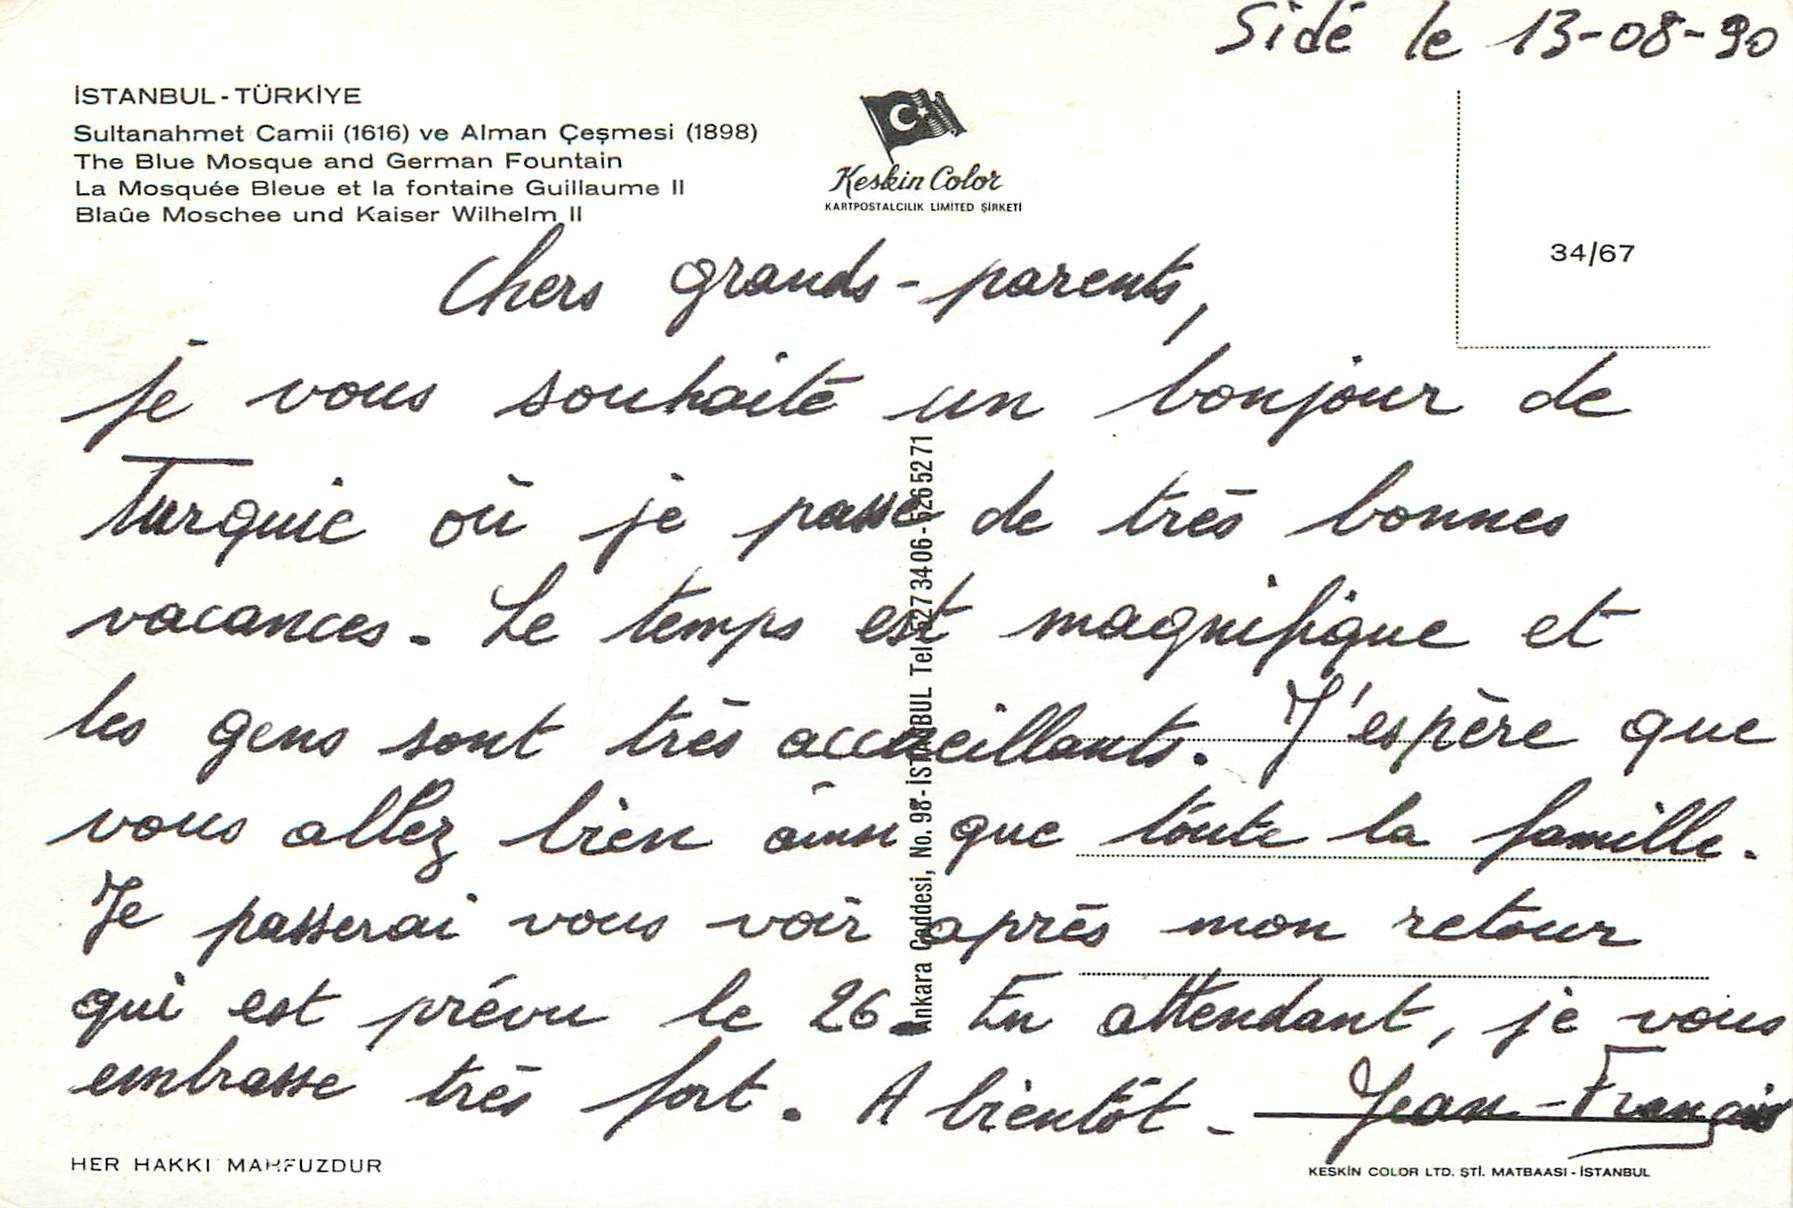 Sidé le 13-08-90
İSTANBUL-TÜRKİYE
Sultanahmet Camii (1616) ve Alman Çeşmesi (1898)
The Blue Mosque and German Fountain
La Mosquée Bleue et la fontaine Guillaume II
Blaûe Moschee und Kaiser Wilhelm II
Keskin Color
KARTPOSTALCILIK LIMITED ŞİRKETİ
34/67
Chers grands-parents,
je vous souhaite un bonjour de
Turquie où je passe de très bonnes
vacances. Le temps est magnifique et
les gens sont très accueillants. J'espère que
vous allez bien ainsi que toute la famille.
Je passerai vous voir après mon retour
qui est prévu le 26. En attendant, je vous
embrasse très fort. A bientôt - Jean-François
Ankara Caddesi, No. 98-İSTANBUL Tel 5273406-5265271
HER HAKKI MAHFUZDUR
KESKİN COLOR LTD. ŞTİ. MATBAASI - İSTANBUL